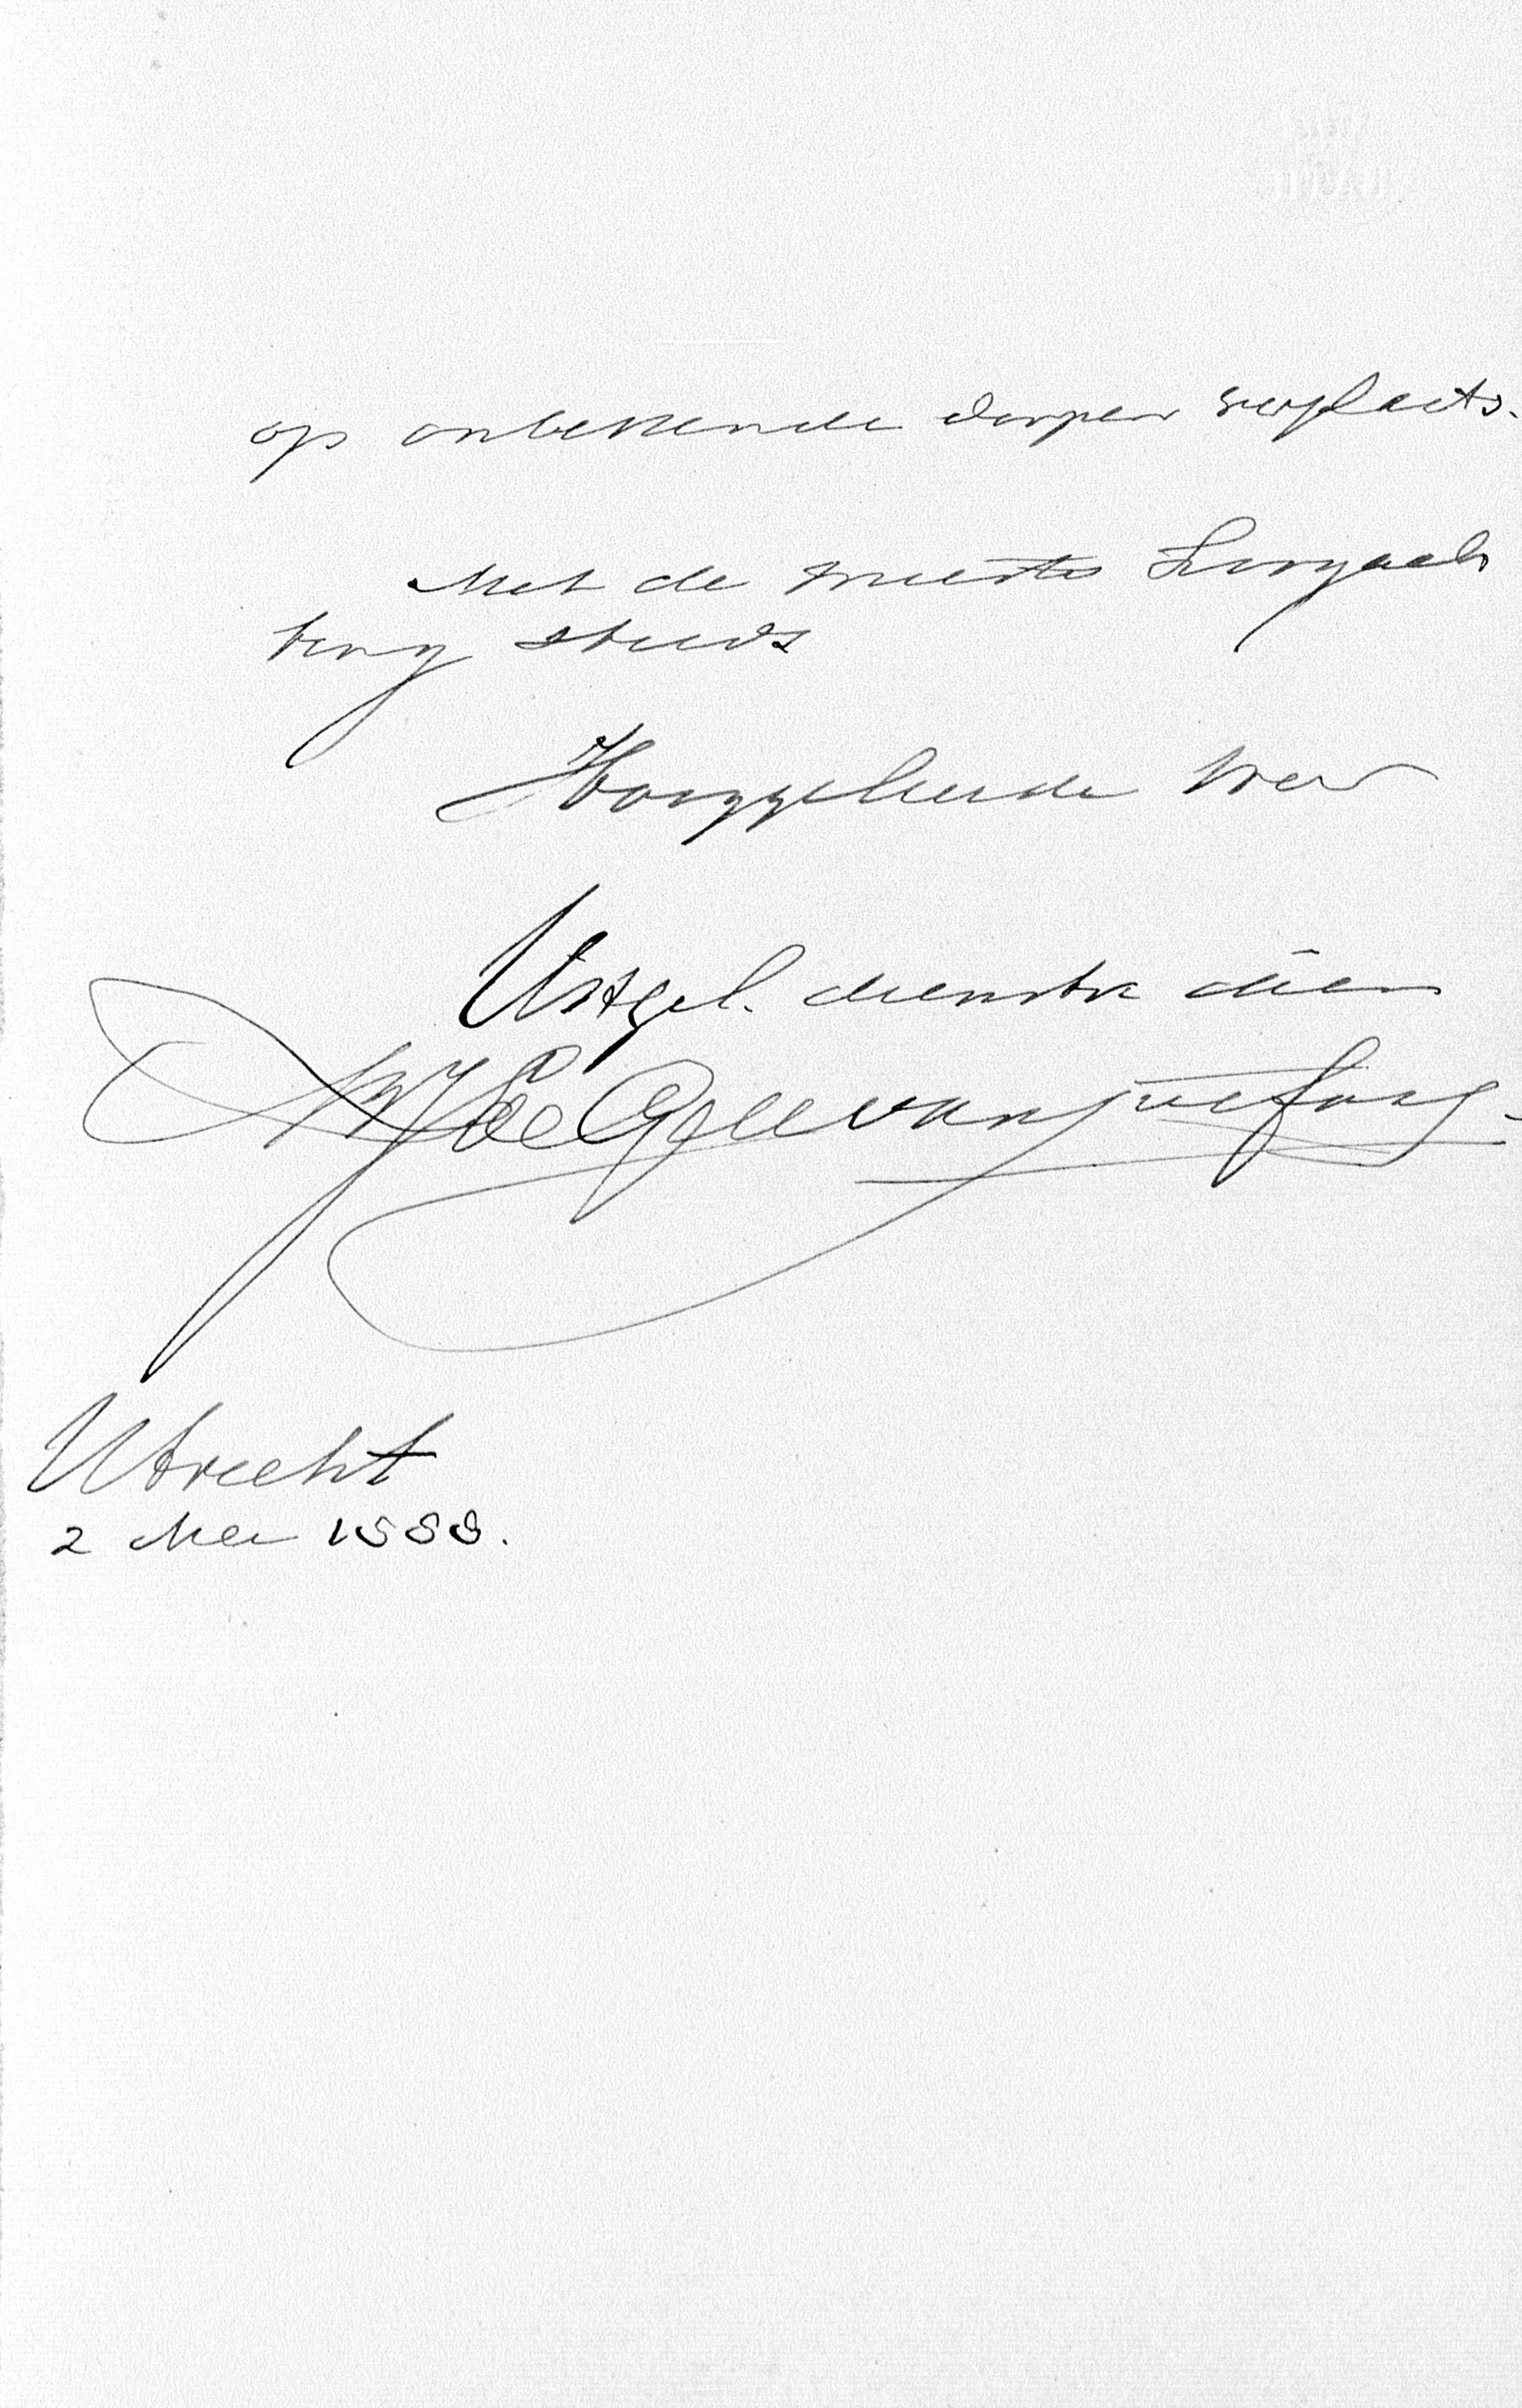 op onbekende dorpen verplaats.
Met de meeste Hoogach
ting steeds
Hooggeleerde Heer
UHgel. dienstv. dien
Utrecht
2 Mei 1888.